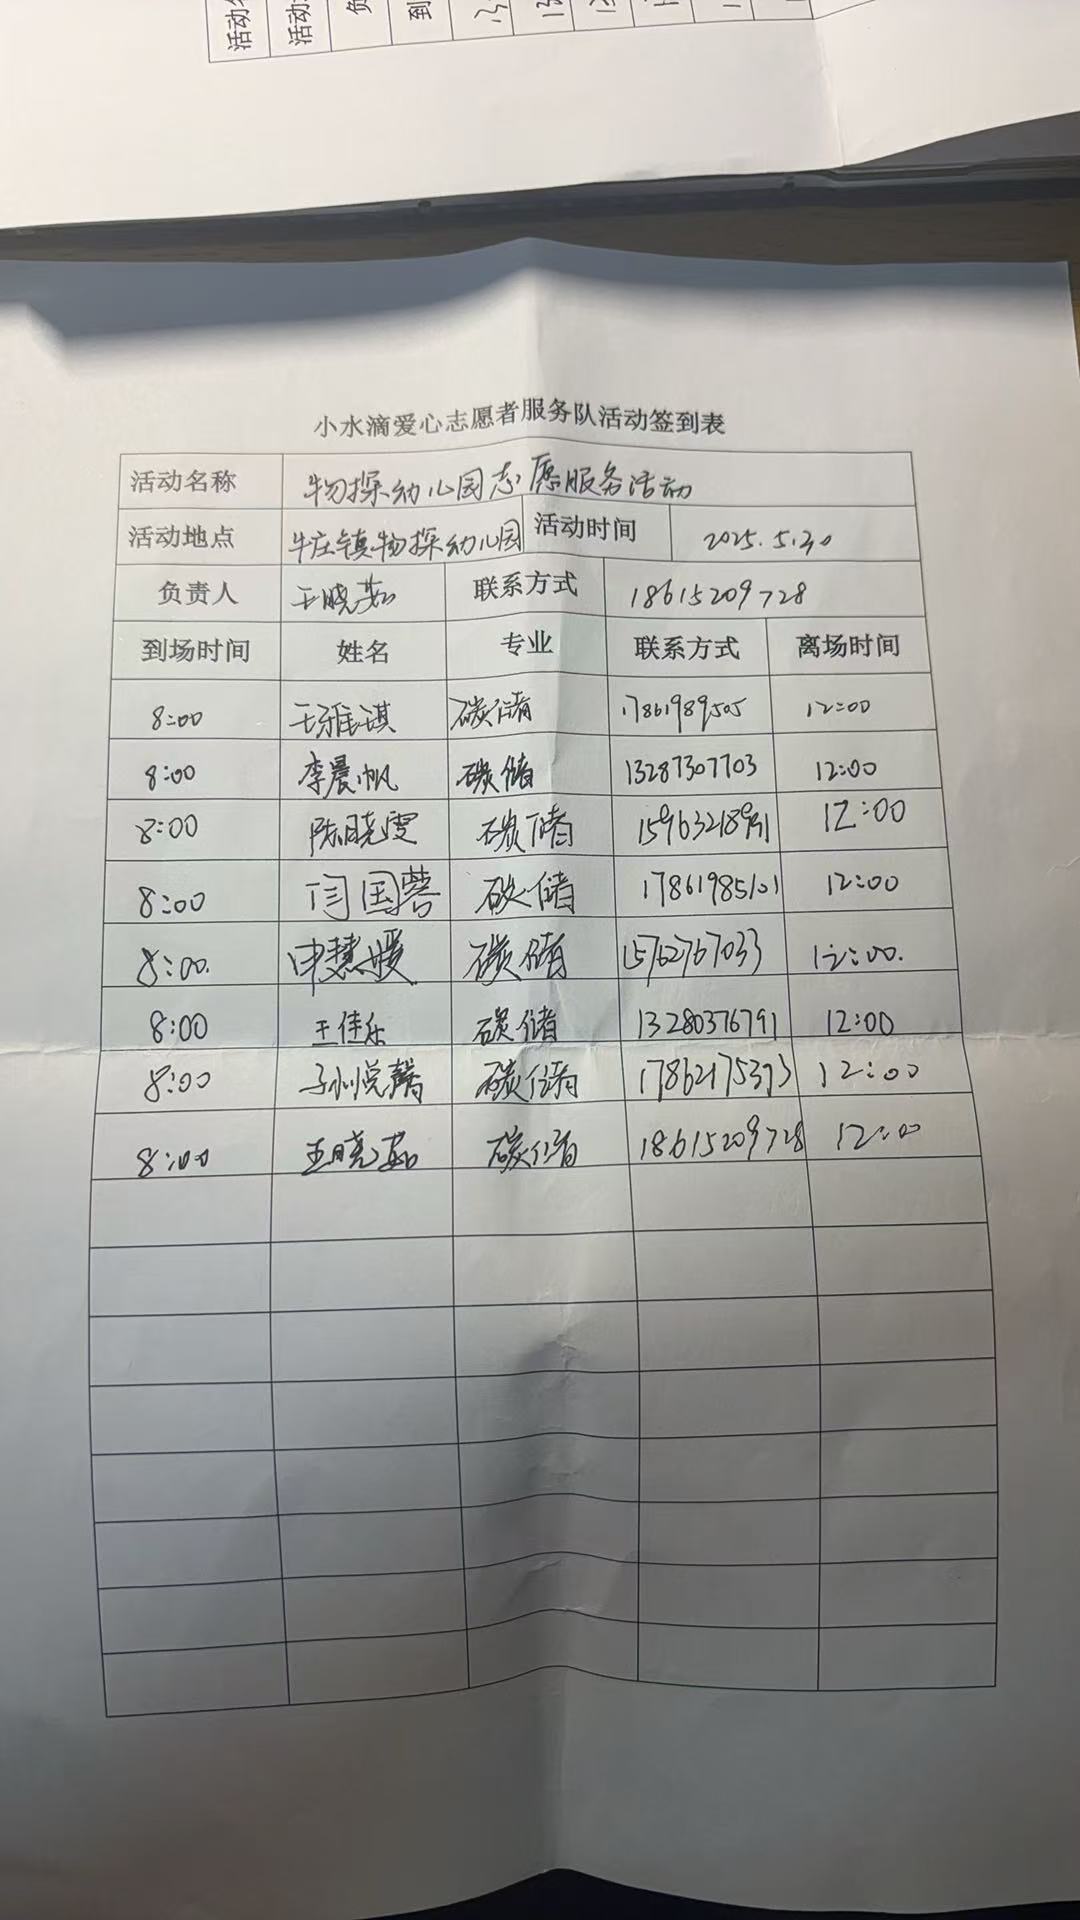 活动
活动
负
到
小水滴爱心志愿者服务队活动签到表
活动名称 物探幼儿园志愿服务活动
活动地点 牛庄镇物探幼儿园 活动时间 2025.5.30
负责人 王晓茹 联系方式 18615209728
到场时间 姓名 专业 联系方式 离场时间
8:00 王雅琪 碳储 17861989505 12:00
8:00 李晨帆 碳储 13287307703 12:00
8:00 陈晓雯 碳储 12:00
8:00 闫国蓉 碳储 17861985101 12:00
8:00. 申慧媛 碳储 15762767033 12:00.
8:00 王佳乐 碳储 13280376791 12:00
8:00 碳储 17862175373 12:00
8:00 王晓茹 碳储 18615209728 12:00